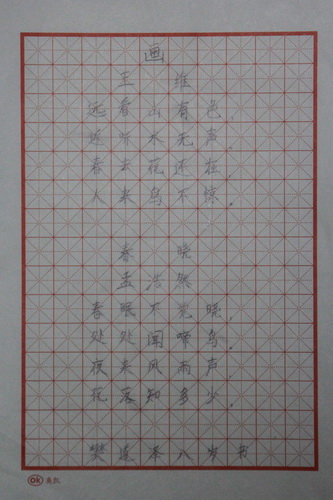 画
王维
远看山有色,
近听水无声。
春去花还在,
人来鸟不惊。
春晓
孟浩然
春眠不觉晓,
处处闻啼鸟。
夜来风雨声
花落知多少。
樊连泽八岁书
Gk 真彩